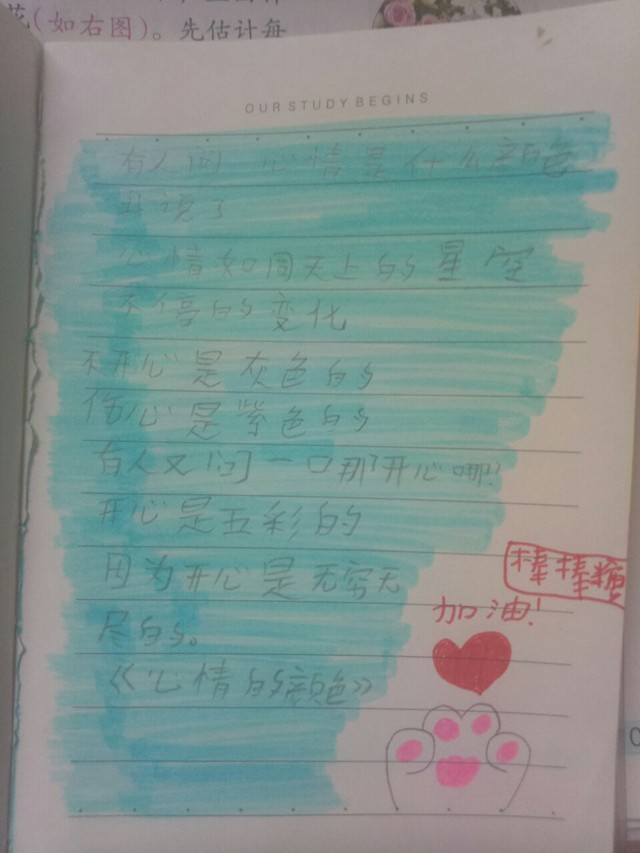 花(如右图)。先估计每
OUR STUDY BEGINS
有人问 心情是什么颜色
我说了
心情如同天上的星空
不停的变化
不开心是灰色的
伤心是紫色的
有人又问一口那开心哪?
开心是五彩的
因为开心是无穷无
尽的。
《心情的颜色》
棒棒糖
加油!